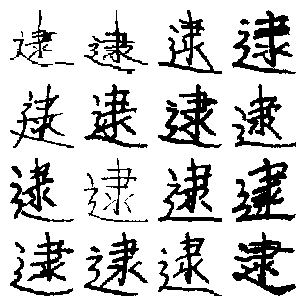 逮逮逮逮
逮逮逮逮
逮逮逮逮
逮逮逮逮